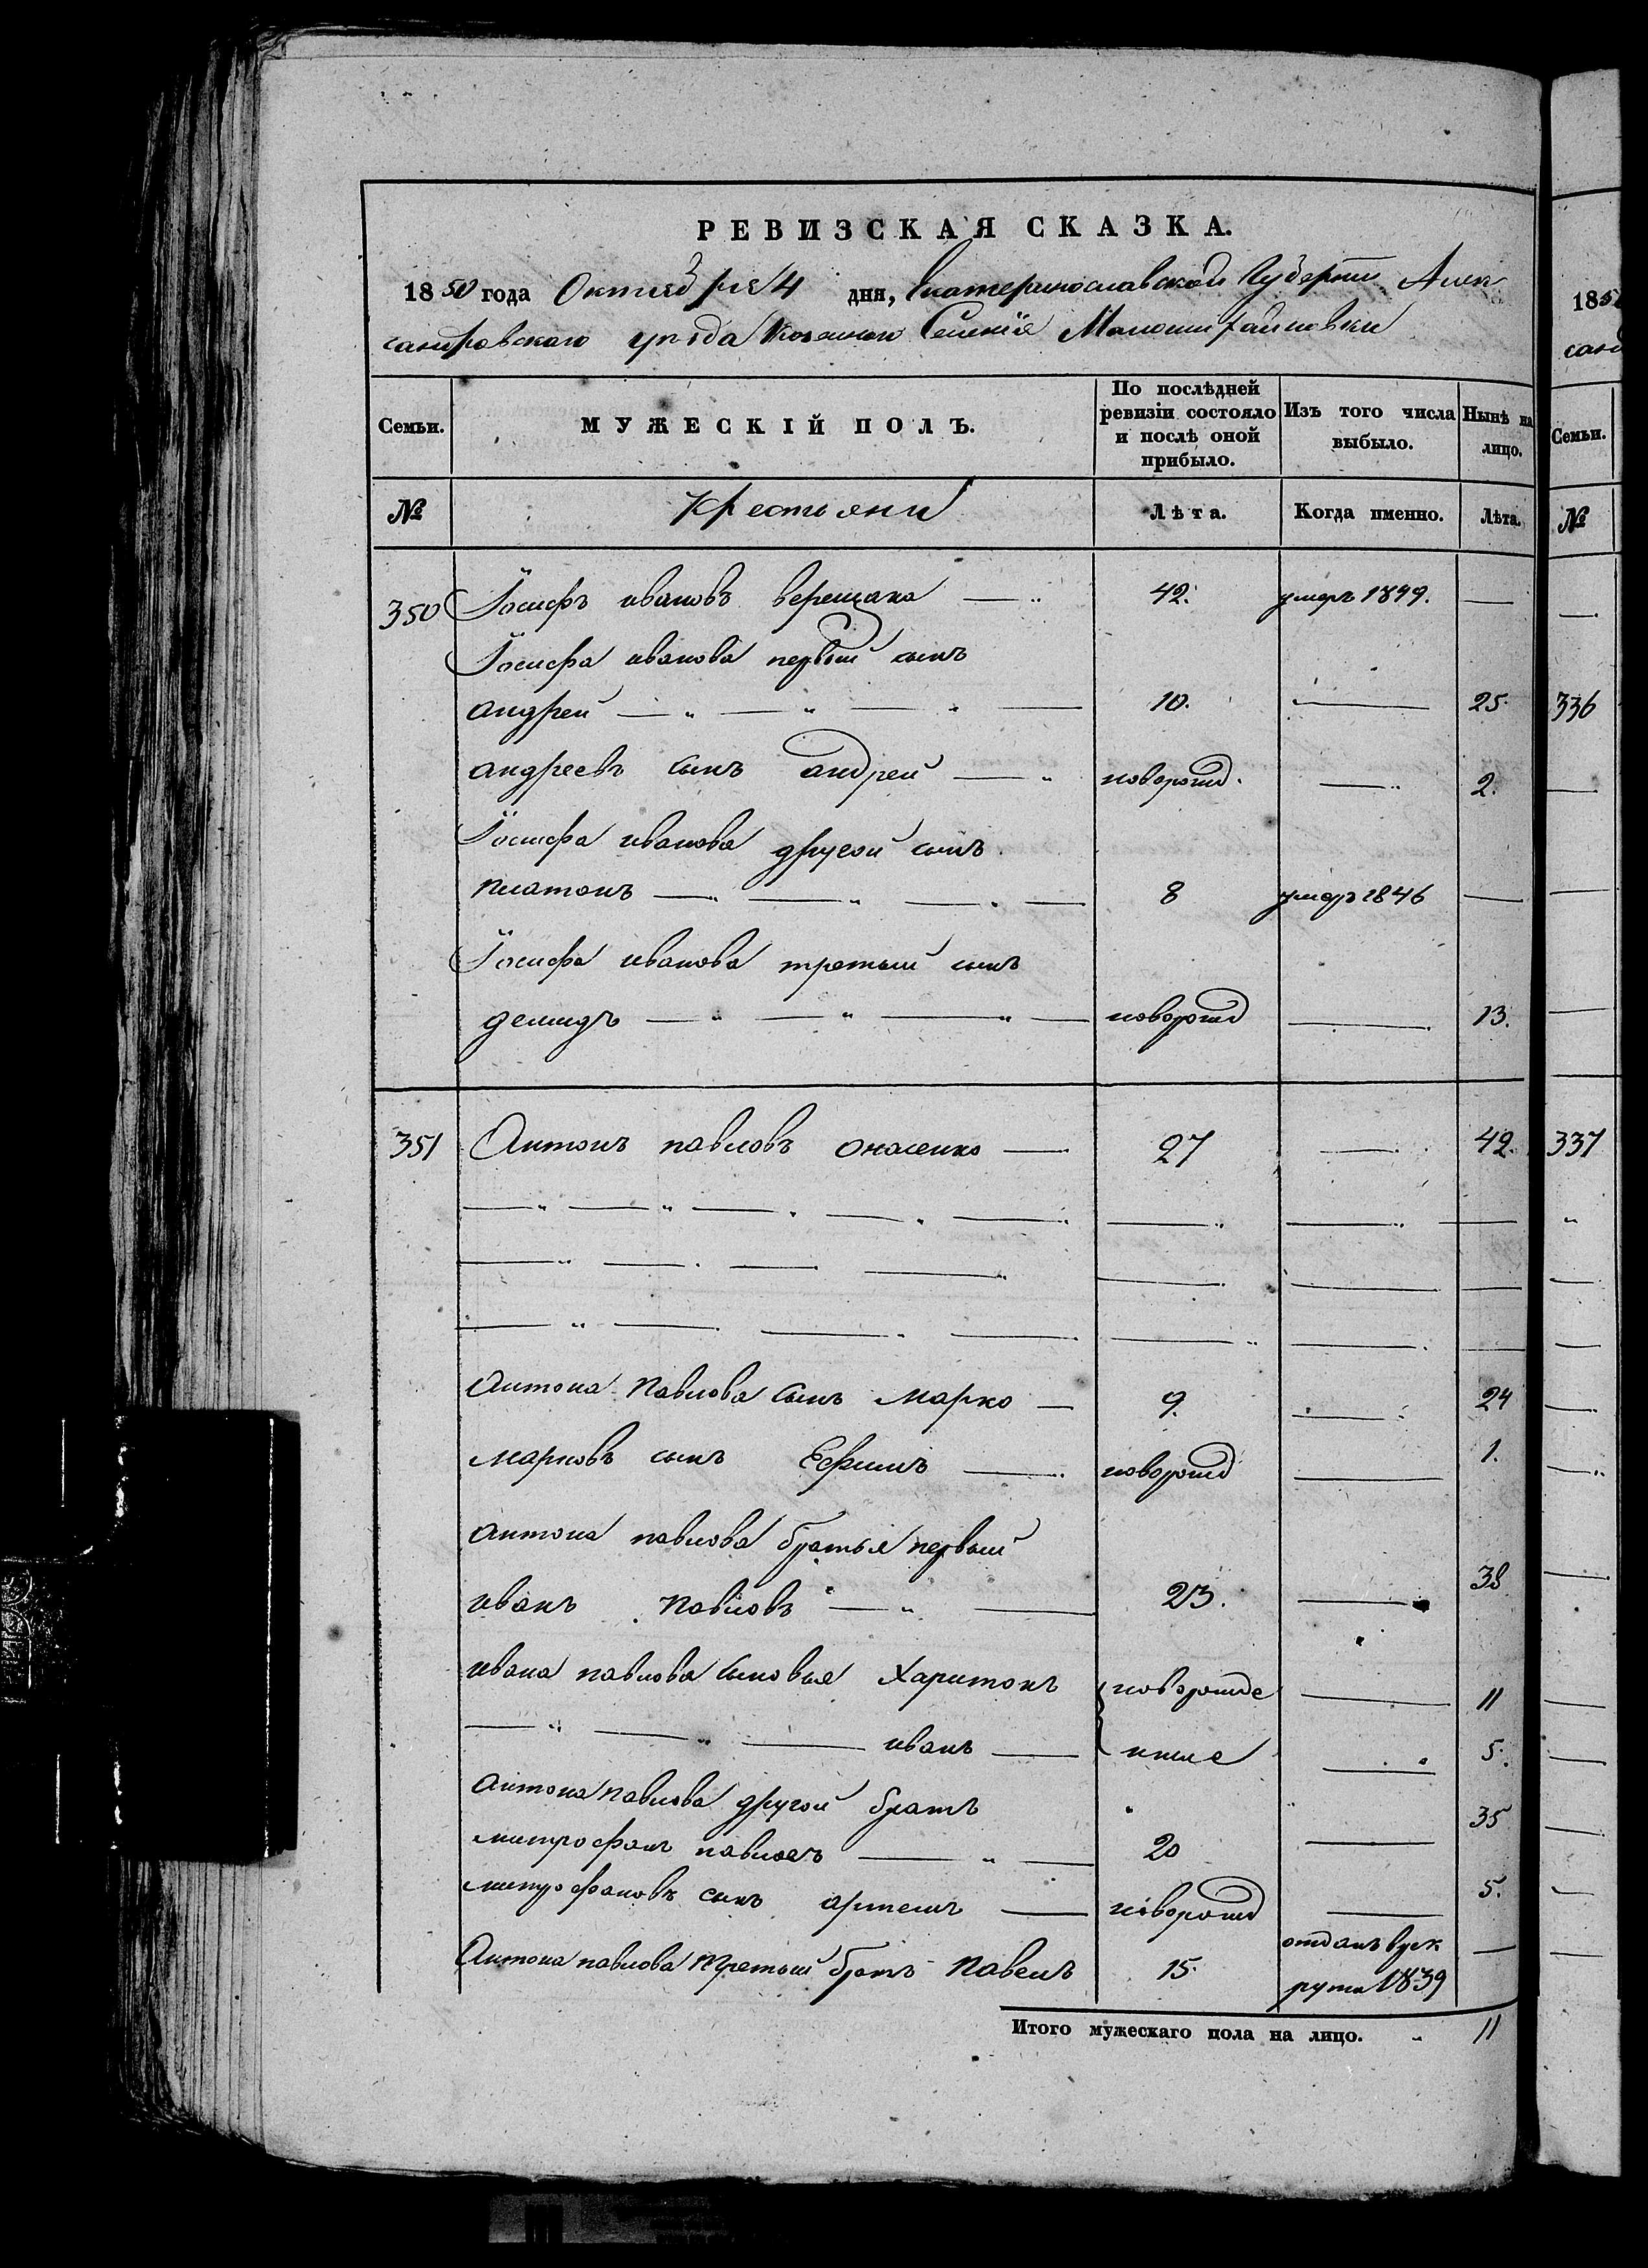 РЕВИЗСКАЯ СКАЗКА.
1850 года Октября 4 дня, Екатеринославской Губернии Алек
сандровского уезда Казенного Селения Маломихайловки
Семьи. МУЖЕСКІЙ ПОЛЪ. По послѣдней ревизіи состояло и послѣ оной прибыло. Изъ того числа выбыло. Нынѣ на лицо.
№ Крестьяни Лѣта. Когда именно. Лѣта.
350 Іосифъ ивановъ верещака 42. умеръ 1849.
Іосифа иванова первый сынъ
андрей 10. 25.
андреевъ сынъ андрей новорожд. 2.
Іосифа иванова другой сынъ
платонъ 8 умеръ 1846
Іосифа иванова третий сынъ
демидъ новорожд 13.
351 Антонъ павловъ онасенко 27 42.
антона павлова сынъ марко 9. 24
марковъ сынъ Ефимъ новорожд 1.
антона павлова братья первый
иванъ павловъ 23. 38
ивана павлова сыновья харитонъ новорожде 11
иванъ нные 5.
антона павлова другой братъ 35
митрофанъ павловъ 20
митрофановъ сынъ артемъ новорожд 5.
Антона павлова третий братъ павелъ 15. отданъ врек
рути 1839
Итого мужескаго пола на лицо. 11
185
санд
Семьи.
№
336
337